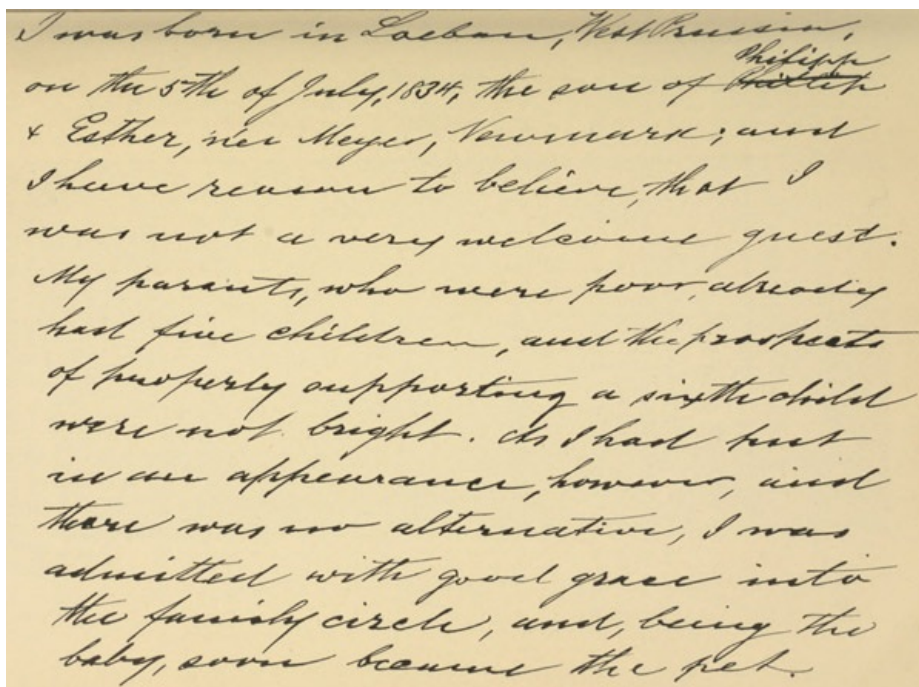 I was born in Loebau, West Prussia,
Philipp
on the 5th of July, 1834, the son of Phillip
& Esther, née Meyer, Newmark; and
I have reason to believe, that I
was not a very welcome guest.
My parents, who were poor, already
had five children, and the prospects
of properly supporting a sixth child
were not bright. As I had put
in an appearance, however, and
there was no alternative, I was
admitted with good grace into
the family circle, and, being the
baby, soon became the pet.